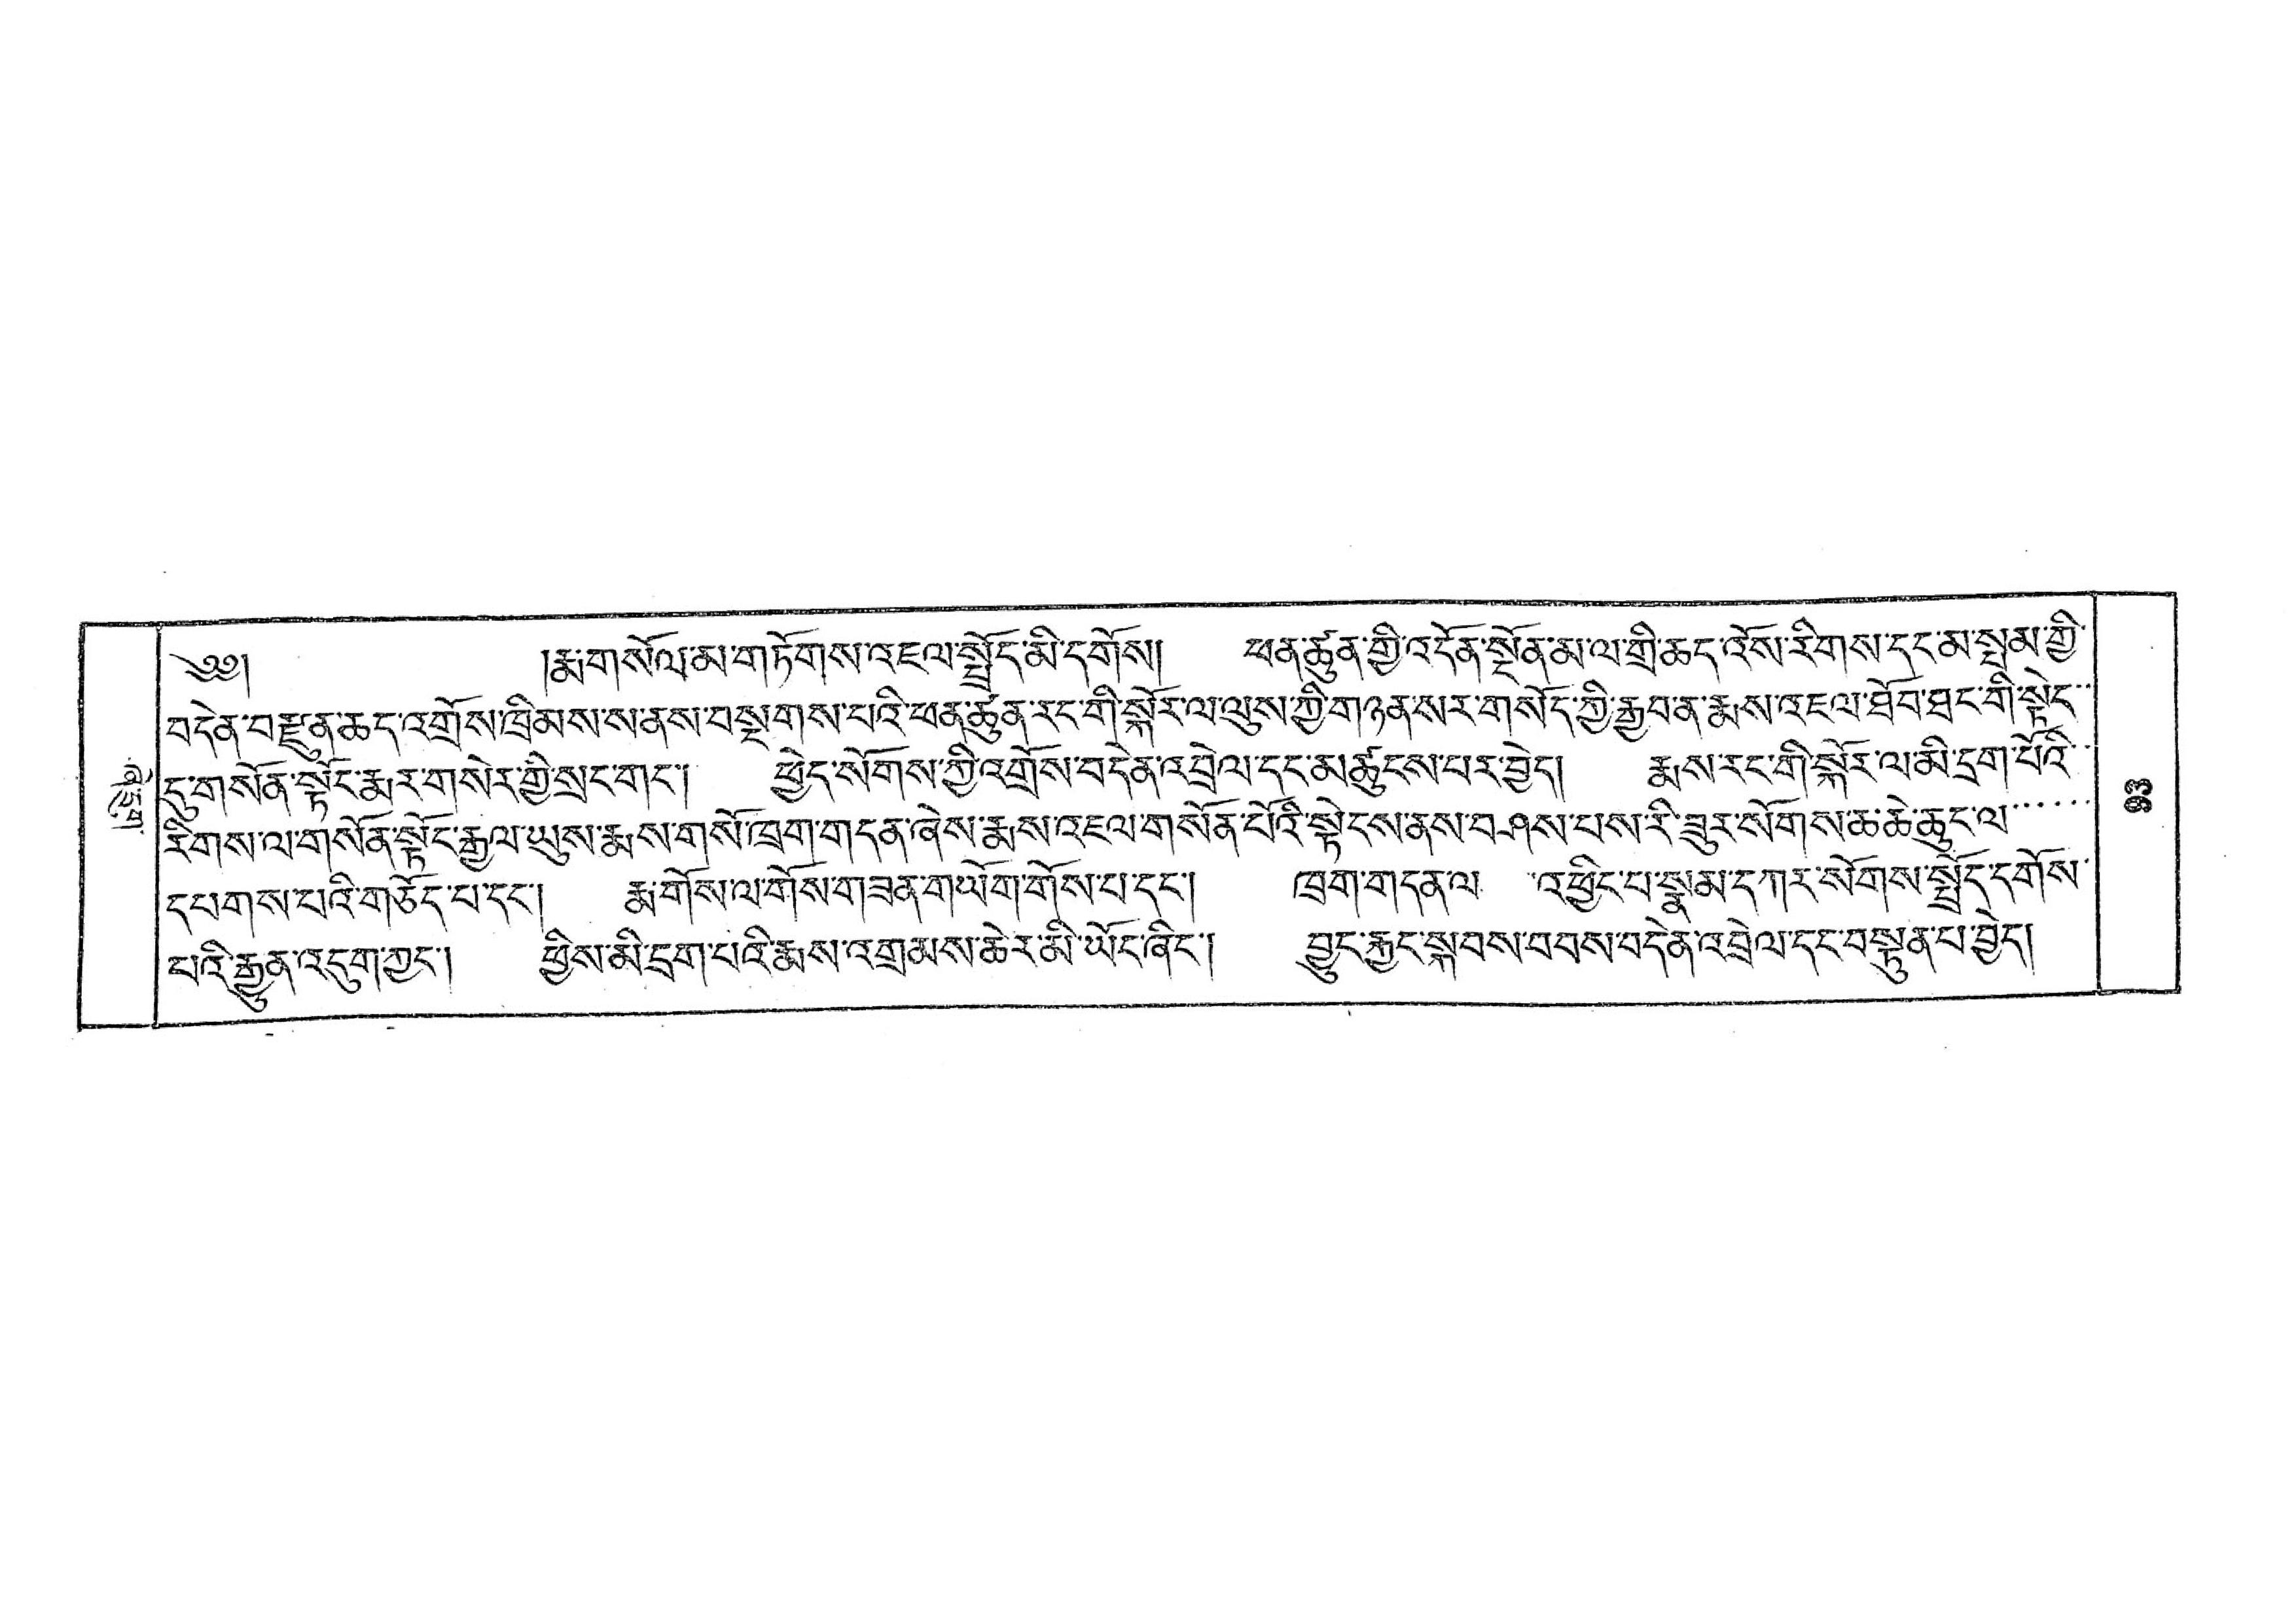 ༄༅། །རྨ་གསོལ་མ་གཏོགས་འཇལ་སྤྲོད་མི་དགོས། ཕན་ཚུན་གྱི་འདོན་སྔོན་མ་ལ་གྲི་ཆད་འོས་རིགས་དང་མ་སྨྲས་གྱི་
བདེན་བརྫུན་ཆད་འགྲོས་ཁྲིམས་ས་ནས་བསྔགས་པའི་ཕན་ཚུན་རང་གི་སྐོར་ལ་ལུས་ཀྱི་གཉན་སར་གསོད་ཀྱི་རྒྱབ་ན་རྨས་འཇལ་ཐོབ་ཐང་གི་སྟེང་
དུ་གསོན་སྟོང་རྨར་གསེར་གྱི་སྲང་གང་། ཕྱེད་སོགས་ཀྱི་འགྲོས་བདེན་འབྲེལ་དང་མཚུངས་པར་བྱེད། རྨས་རང་གི་སྐོར་ལ་མི་དྲག་པོའི་
རིགས་ལ་གསོན་སྟོང་རྒྱལ་ཡུས་རྨས་གསོ་ཁྲག་གདན་ཞེས་རྨས་འཇལ་གསོན་པོའི་སྟེངས་ནས་བཤས་པས་རི་ཟུར་སོགས་ཆ་ཆེ་ཆུང་ལ་་་་་་
དཔགས་པའི་གཅོད་པ་དང་། རྨ་གོས་ལ་གོས་གཟན་གཡོག་གོས་པ་དང་། ཁྲག་གདན་ལ་ འཕྱིང་པ་སྣམ་དཀར་སོགས་སྤྲོད་དགོས་
པའི་རྒྱུན་འདུག་ཀྱང་། ཕྱིས་མི་དྲག་པའི་རྨས་འགྲམས་ཆེར་མི་ཡོང་ཞིང་། བྱུང་རྐྱང་སྐབས་བབས་བདེན་འབྲེལ་དང་བསྟུན་པ་བྱེད།
༧༣